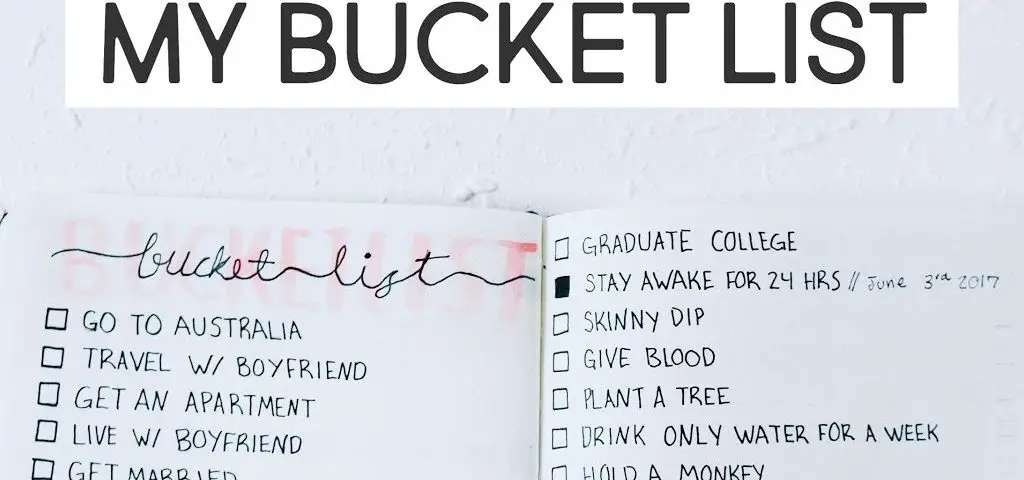 MY BUCKET LIST
bucket list
GO TO AUSTRALIA
TRAVEL W/ BOYFRIEND
GET AN APARTMENT
LIVE W/ BOYFRIEND
GET MARRIED
GRADUATE COLLEGE
STAY AWAKE FOR 24 HRS // June 3rd 2017
SKINNY DIP
GIVE BLOOD
PLANT A TREE
DRINK ONLY WATER FOR A WEEK
HOLD A MONKEY